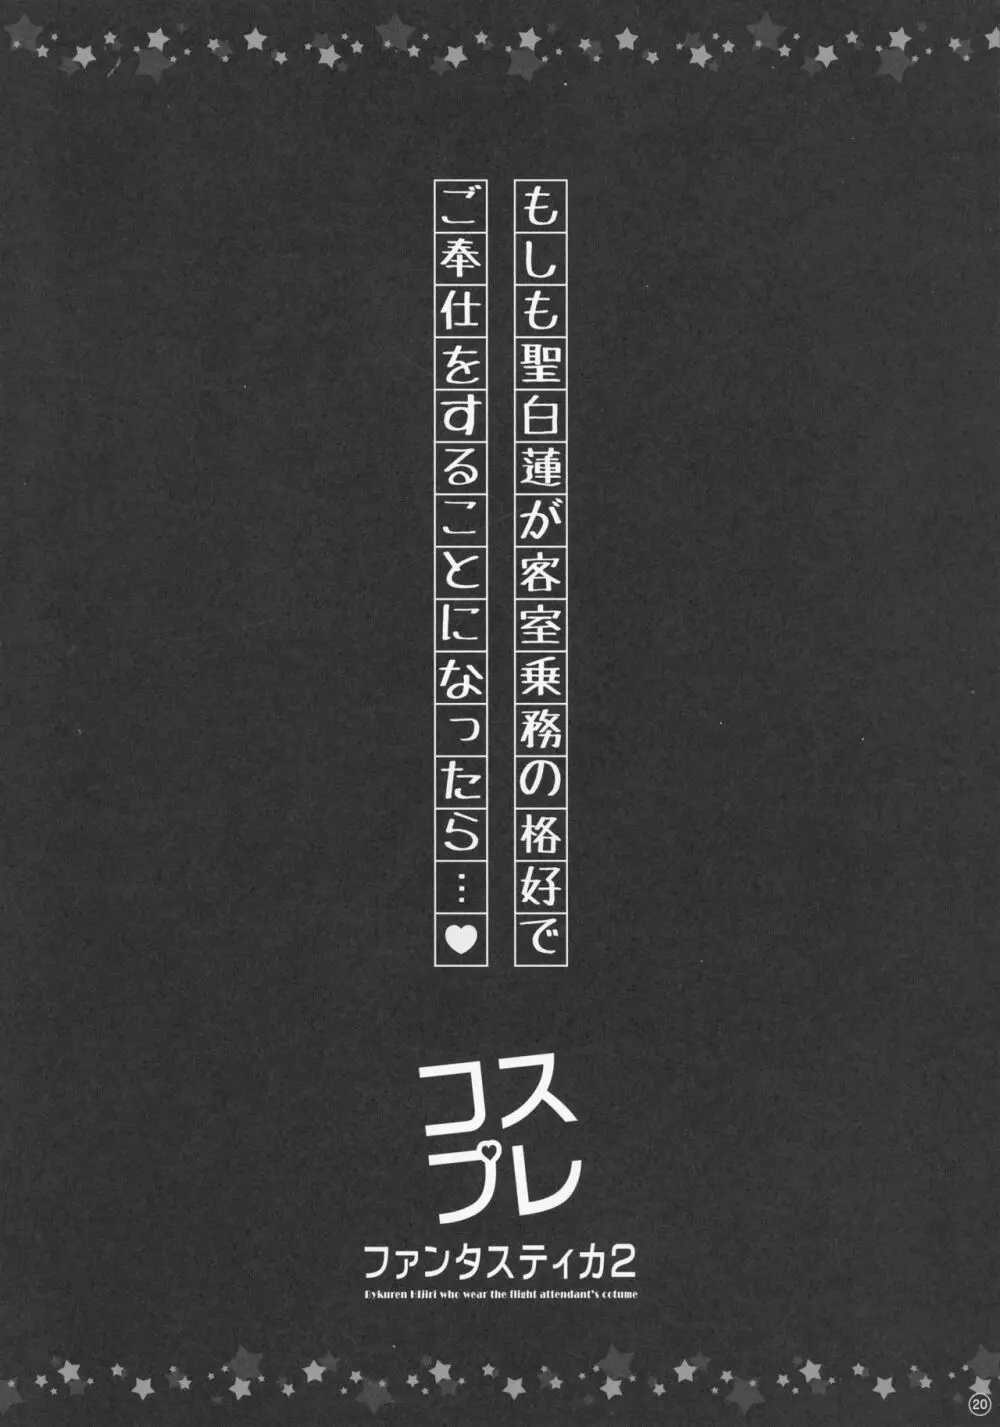 もしも聖白蓮が客室乗務の格好で
ご奉仕をすることになったら…♥
コス
プレ
ファンタスティカ2
Bykuren Hijiri who wear the flight attendant's cotume
20